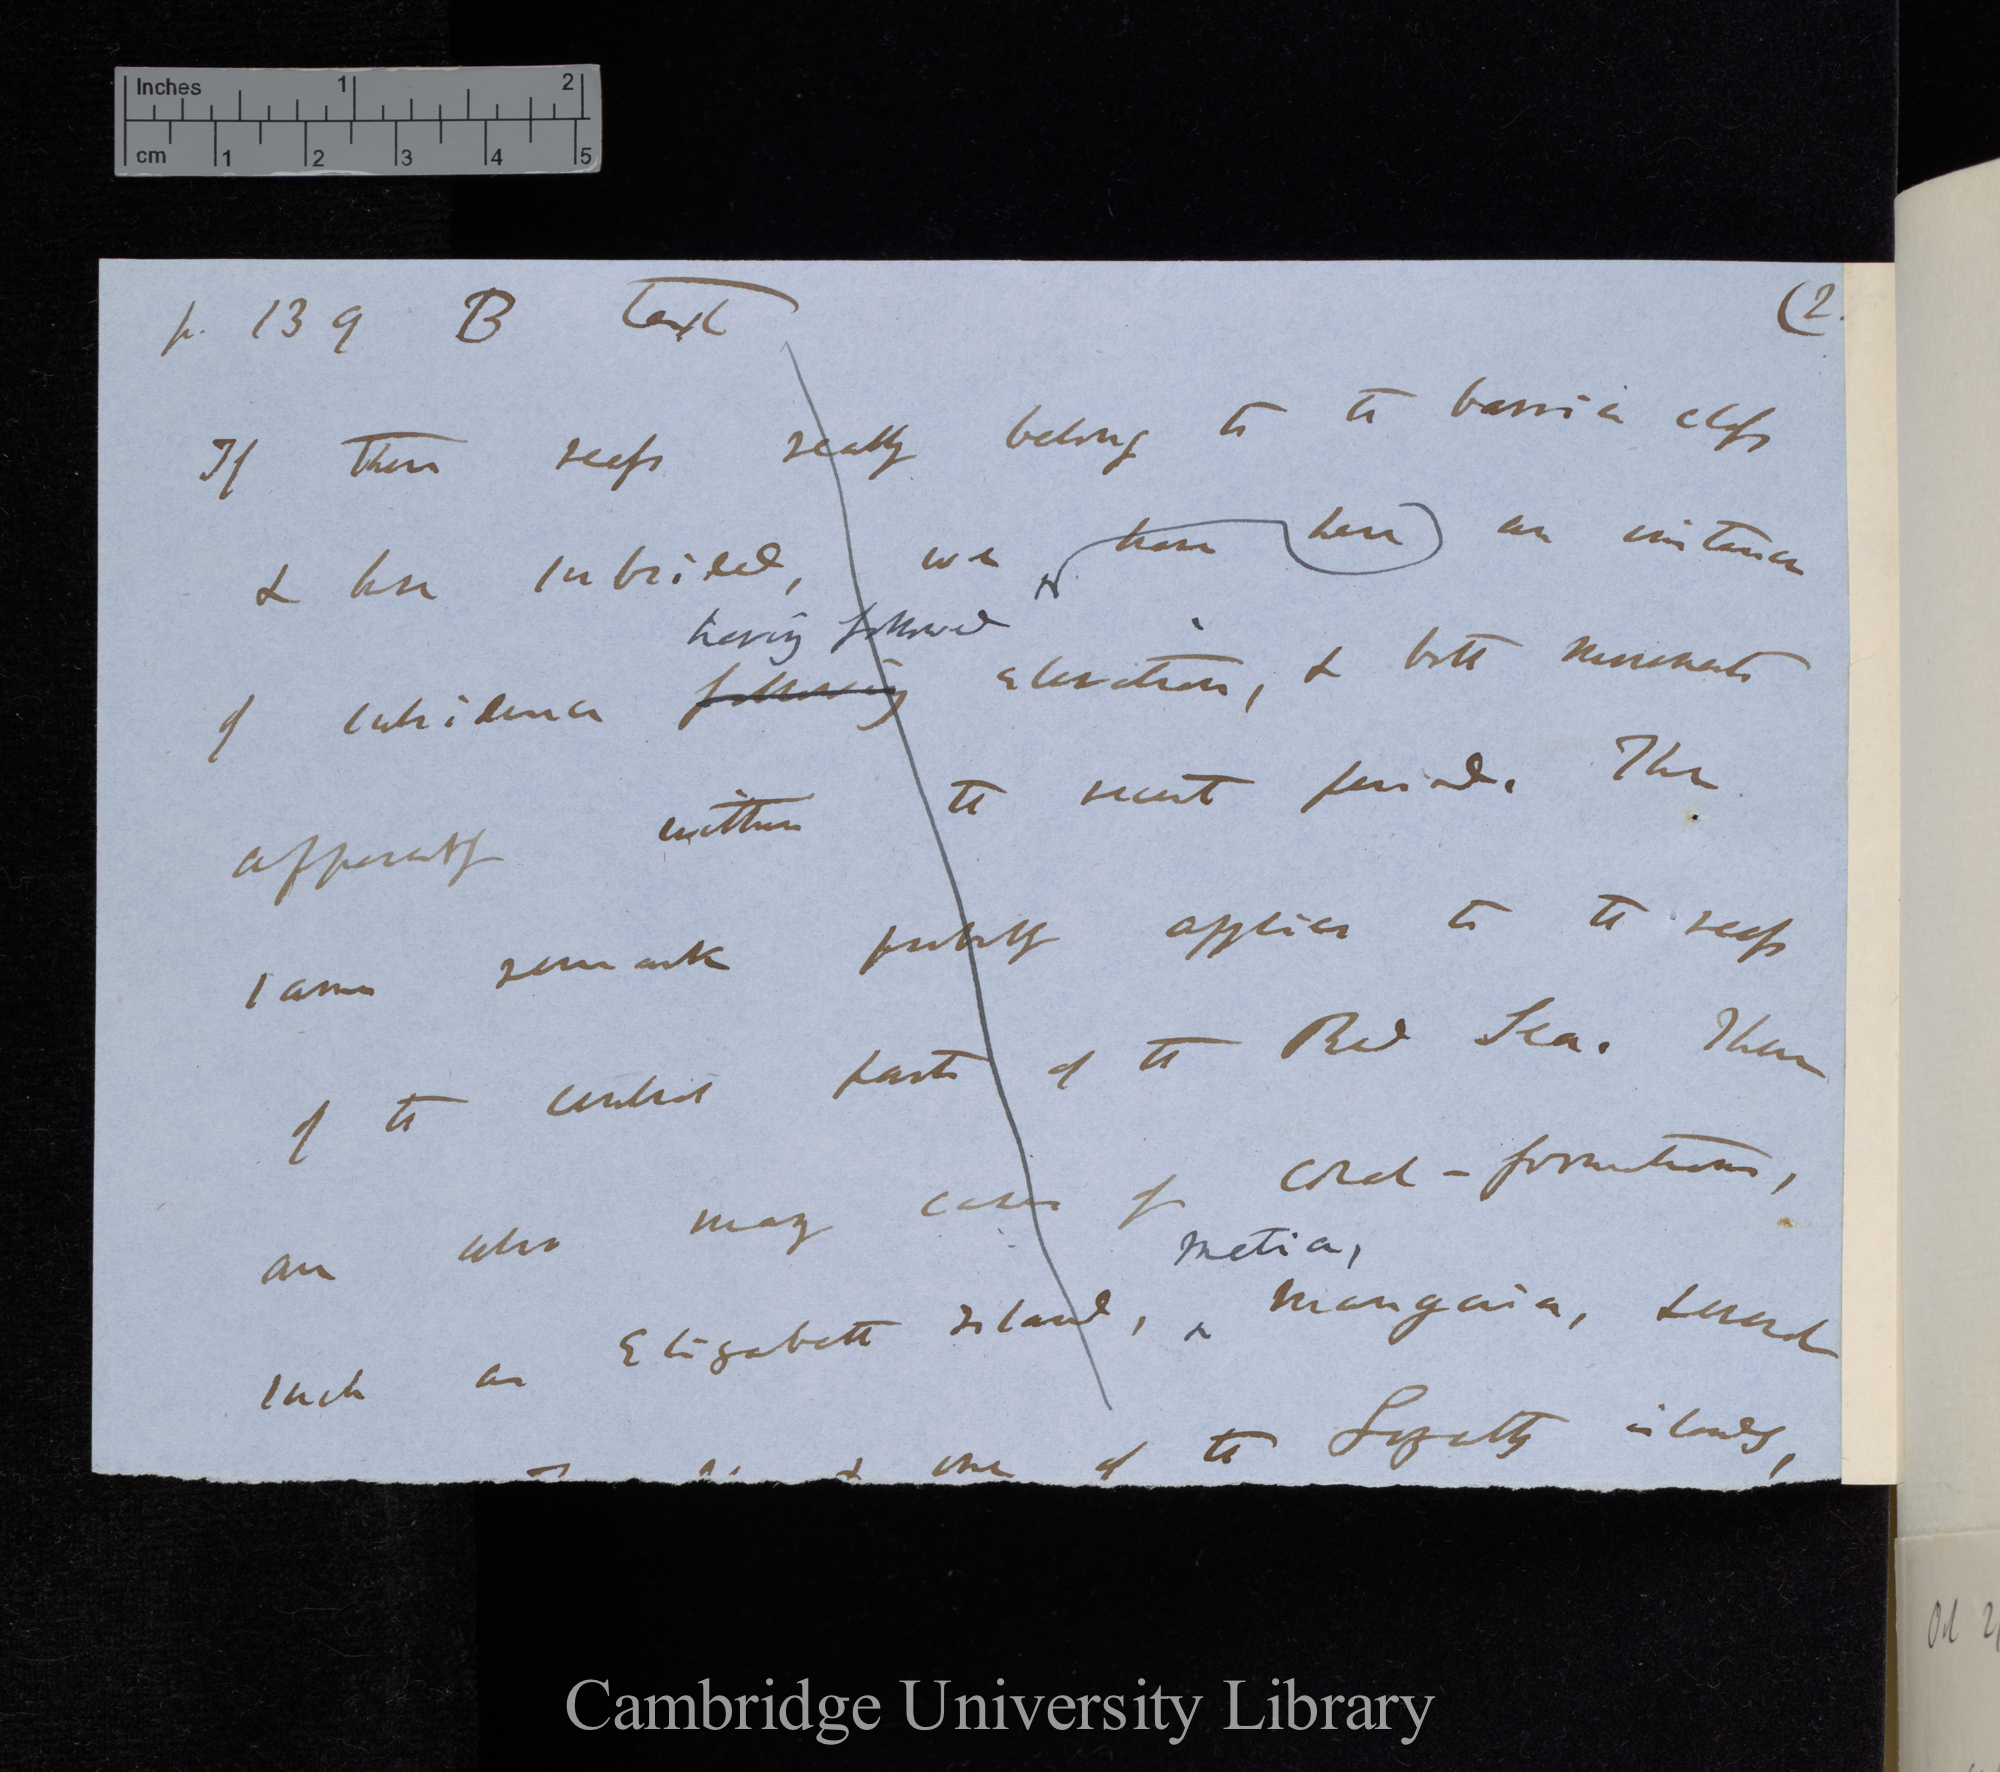 Inches 1 2
cm 1 2 3 4 5
p. 139 B Text (2.
If these reefs really belong to the barrier class
& have subsided, we have here an instance
having followed
of subsidence following elevation, & both movements
apparently within the recent period. The
same remark probably applies to the reefs
of the central parts of the Red Sea. There
are also many cases of coral-formations,
Metia,
such as Elizabeth Island, ^ Mangaia, several
& one of the Loyalty islands,
Old
Cambridge University Library